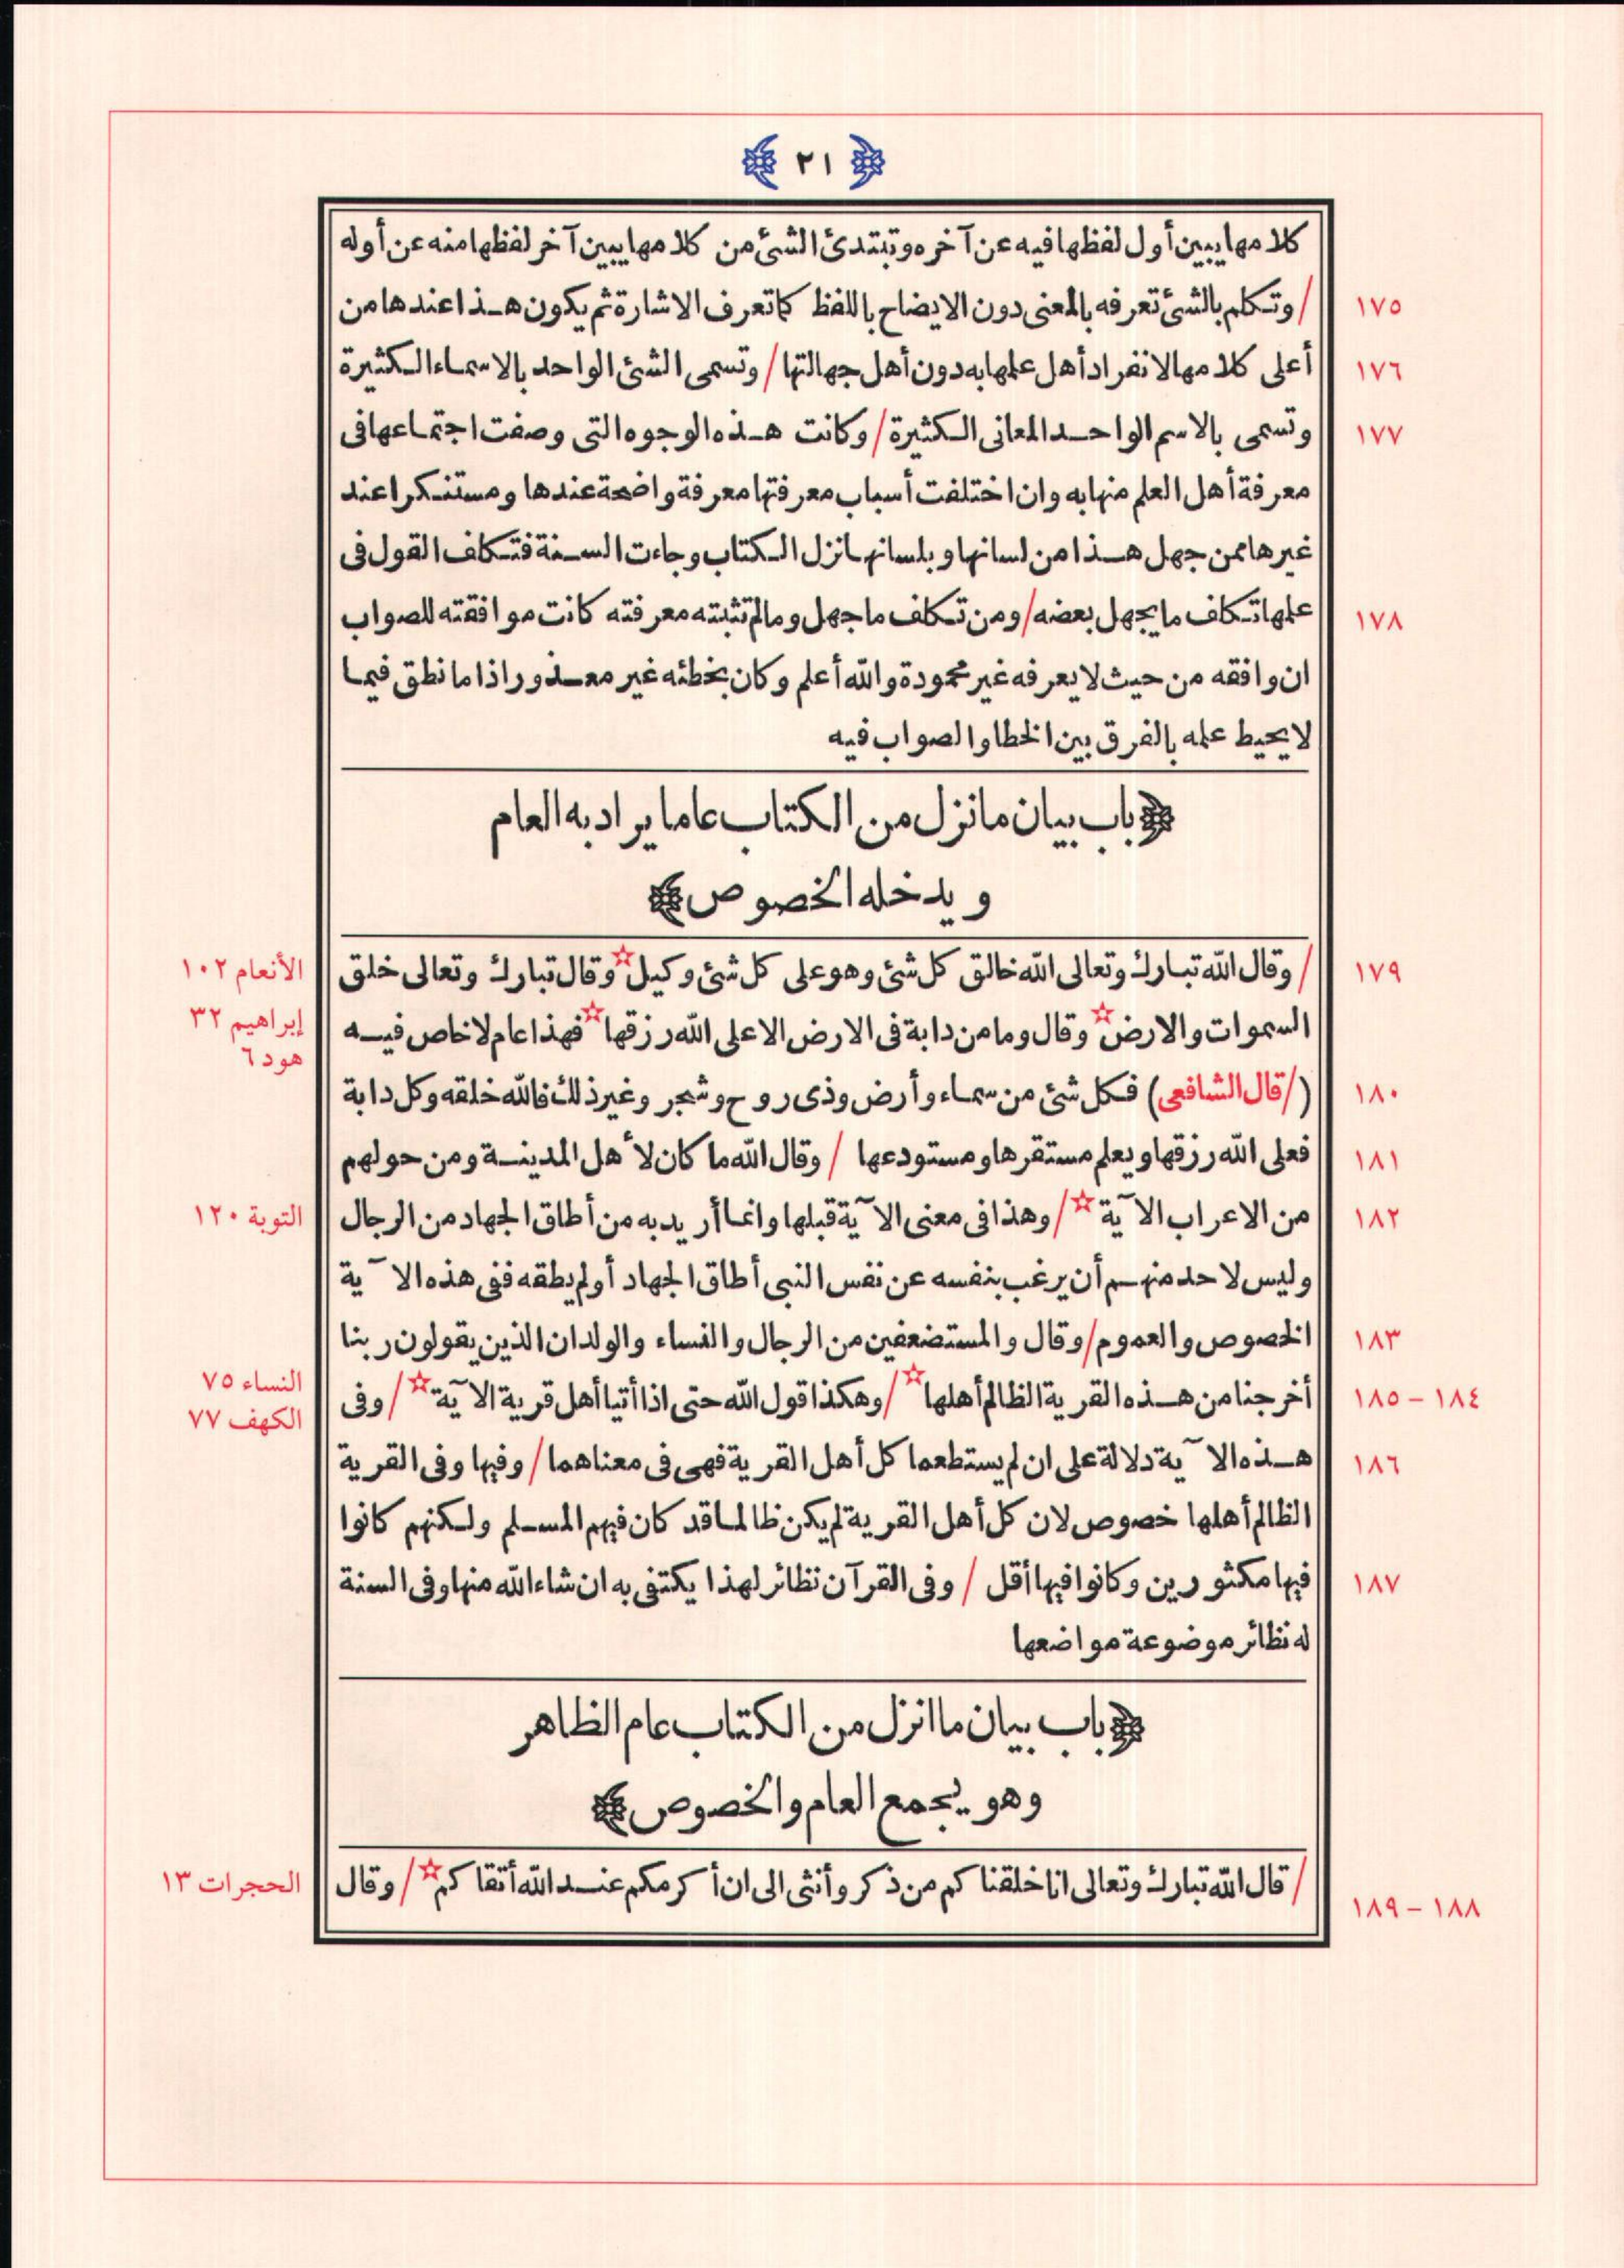 ﴿ ٢١ ﴾
كلامها يبين أول لفظها فيه عن آخره وتبتدئ الشئ من كلامها يبين آخر لفظها منه عن أوله
١٧٥ / وتكلم بالشئ تعرفه بالمعنى دون الايضاح باللفظ كما تعرف الاشارة ثم يكون هذا عندها من
١٧٦ أعلى كلامها لانفراد أهل علمها به دون أهل جهالتها / وتسمى الشئ الواحد بالاسماء الكثيرة
١٧٧ وتسمى بالاسم الواحد المعانى الكثيرة / وكانت هذه الوجوه التى وصفت اجتماعها فى
معرفة أهل العلم منها به وان اختلفت أسباب معرفتها معرفة واضحة عندها ومستنكرا عند
غيرها ممن جهل هذا من لسانها وبلسانها نزل الكتاب وجاءت السنة فتكلف القول فى
١٧٨ علمها تكلف ما يجهل بعضه / ومن تكلف ما جهل وما لم تثبته معرفته كانت موافقته للصواب
ان وافقه من حيث لا يعرفه غير محمودة والله أعلم وكان بخطئه غير معذور اذا ما نطق فيما
لا يحيط علمه بالفرق بين الخطا والصواب فيه
﴿ باب بيان ما نزل من الكتاب عاما يراد به العام
ويدخله الخصوص ﴾
١٧٩ / وقال الله تبارك وتعالى الله خالق كل شئ وهو على كل شئ وكيل ☆ وقال تبارك وتعالى خلق الأنعام ١٠٢
السموات والارض ☆ وقال وما من دابة فى الارض الا على الله رزقها ☆ فهذا عام لا خاص فيه إبراهيم ٣٢
هود ٦
١٨٠ (/ قال الشافعى) فكل شئ من سماء وأرض وذى روح وشجر وغير ذلك فالله خلقه وكل دابة
١٨١ فعلى الله رزقها ويعلم مستقرها ومستودعها / وقال الله ما كان لأهل المدينة ومن حولهم
١٨٢ من الاعراب الآية ☆ / وهذا فى معنى الآية قبلها وانما أريد به من أطاق الجهاد من الرجال التوبة ١٢٠
وليس لاحد منهم أن يرغب بنفسه عن نفس النبى أطاق الجهاد أو لم يطقه ففى هذه الآية
١٨٣ الخصوص والعموم / وقال والمستضعفين من الرجال والنساء والولدان الذين يقولون ربنا
١٨٤ – ١٨٥ أخرجنا من هذه القرية الظالم أهلها ☆ / وهكذا قول الله حتى اذا أتيا أهل قرية الآية ☆ / وفى النساء ٧٥
الكهف ٧٧
١٨٦ هذه الآية دلالة على ان لم يستطعما كل أهل القرية فهى فى معناهما / وفيها وفى القرية
الظالم أهلها خصوص لان كل أهل القرية لم يكن ظالما قد كان فيهم المسلم ولكنهم كانوا
١٨٧ فيها مكثورين وكانوا فيها أقل / وفى القرآن نظائر لهذا يكتفى به ان شاء الله منها وفى السنة
له نظائر موضوعة مواضعها
﴿ باب بيان ما انزل من الكتاب عام الظاهر
وهو يجمع العام والخصوص ﴾
١٨٨ – ١٨٩ / قال الله تبارك وتعالى انا خلقناكم من ذكر وأنثى الى ان أكرمكم عند الله أتقاكم ☆ / وقال الحجرات ١٣